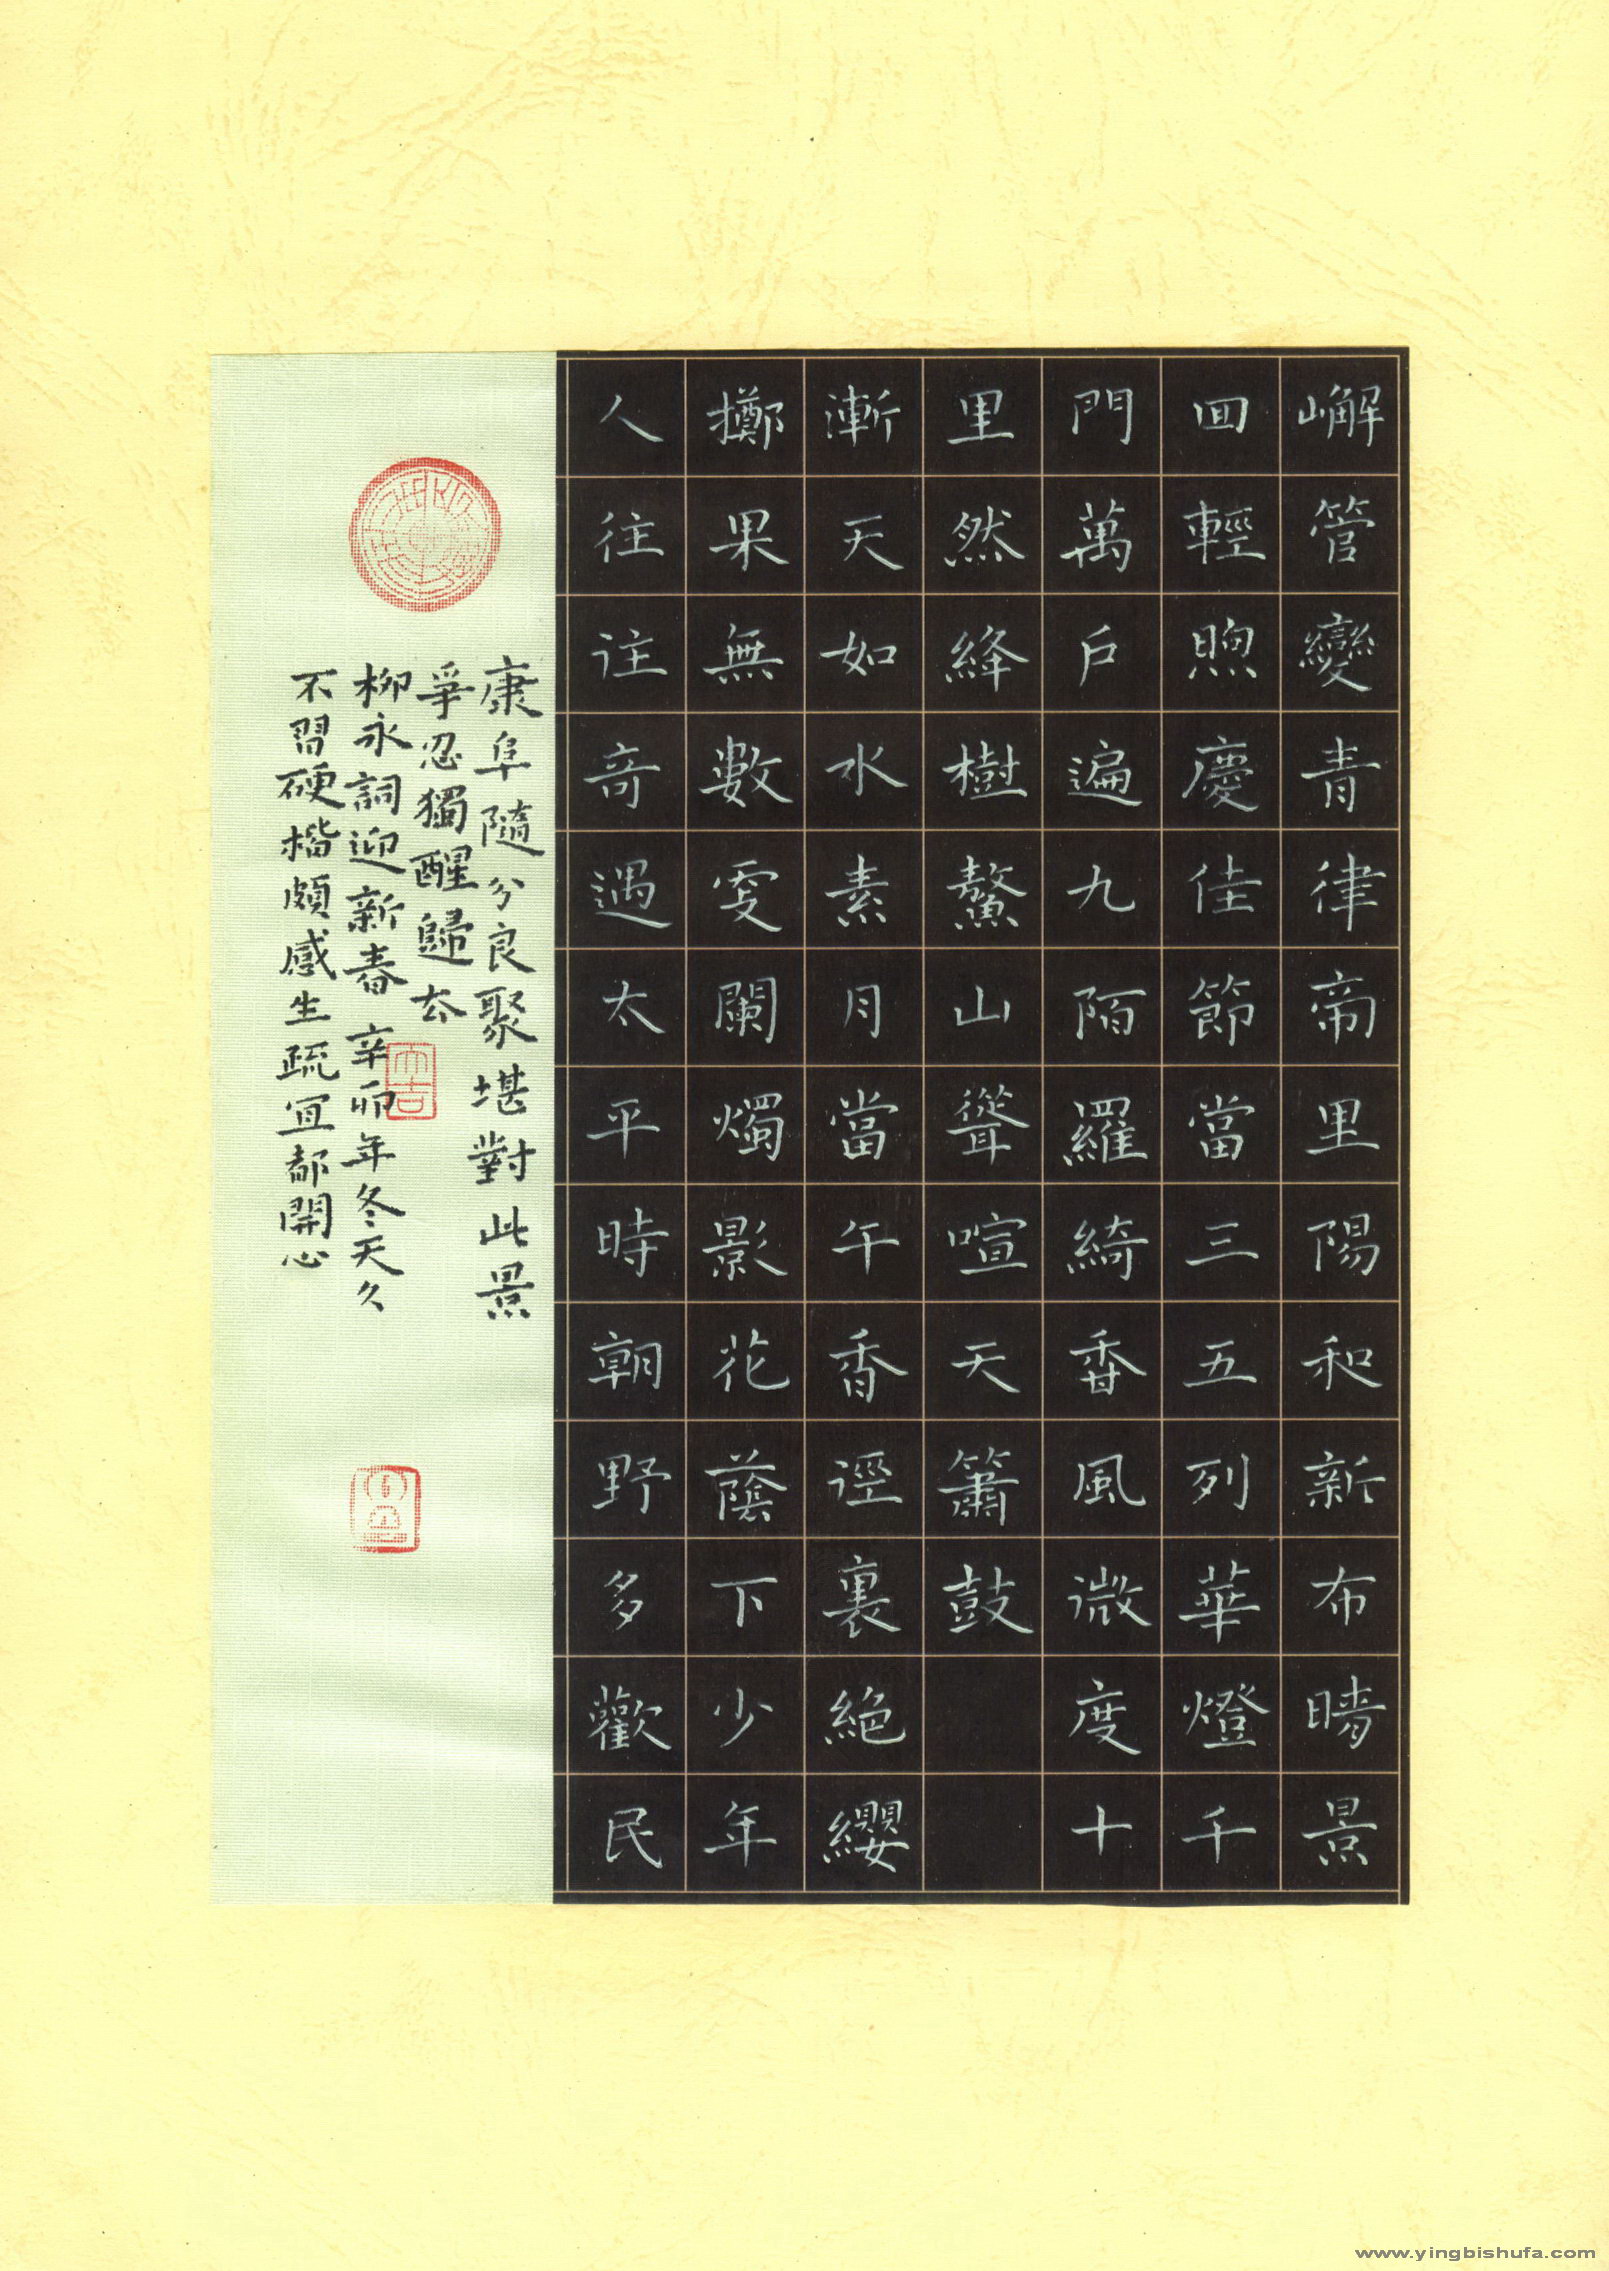 嶰管變青律帝里陽和新布晴景
回輕煦慶佳節當三五列華燈千
門萬戶遍九陌羅綺香風微度十
里然絳樹鰲山聳喧天簫鼓
漸天如水素月當午香徑裏絕纓
擲果無數更闌燭影花蔭下少年
人往往奇遇太平時朝野多歡民
康阜隨分良聚堪對此景
爭忍獨醒歸去
柳永詞迎新春 辛卯年冬天久
不習硬楷頗感生疏 宜都開心
大吉
www.yingbishufa.com